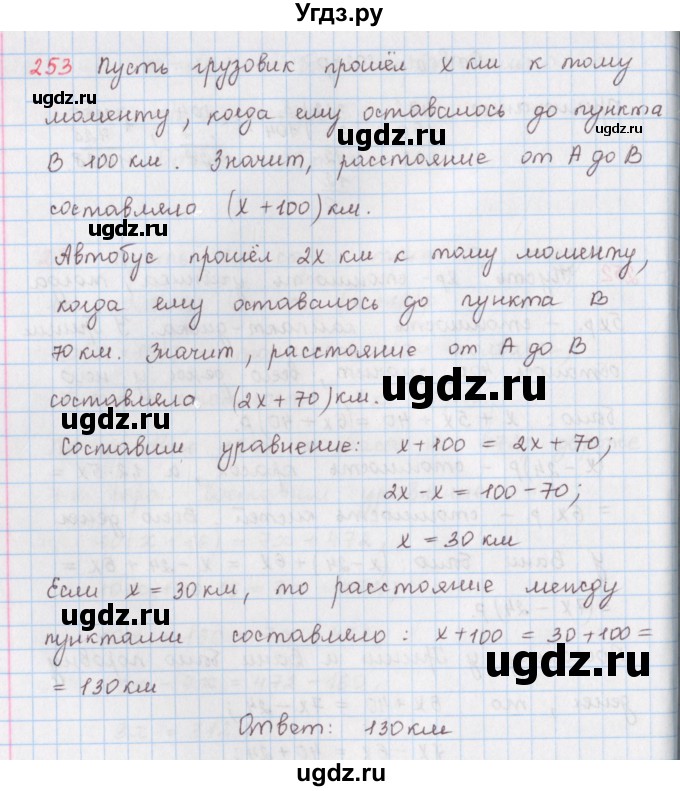 Угдз.ру
253 Пусть грузовик прошёл x км к тому
ugdz.ru
моменту, когда ему оставалось до пункта
ugdz.ru
ugdz.ru
В 100 км. Значит, расстояние от А до В
ugdz.ru
составляло (x + 100) км.
Автобус прошёл 2x км к тому моменту,
ugdz.ru
когда ему оставалось до пункта В
70 км. Значит, расстояние от А до В
ugdz.ru
составляла (2x + 70) км.
ugdz.ru
Составим уравнение: x + 100 = 2x + 70;
ugdz.ru
2x - x = 100 - 70;
x = 30 км
ugdz.ru
Если x = 30 км, то расстояние между
пунктами составляло: x + 100 = 30 + 100 =
ugdz.ru
ugdz.ru
= 130 км
Ответ: 130 км
ugdz.ru
ugdz.ru